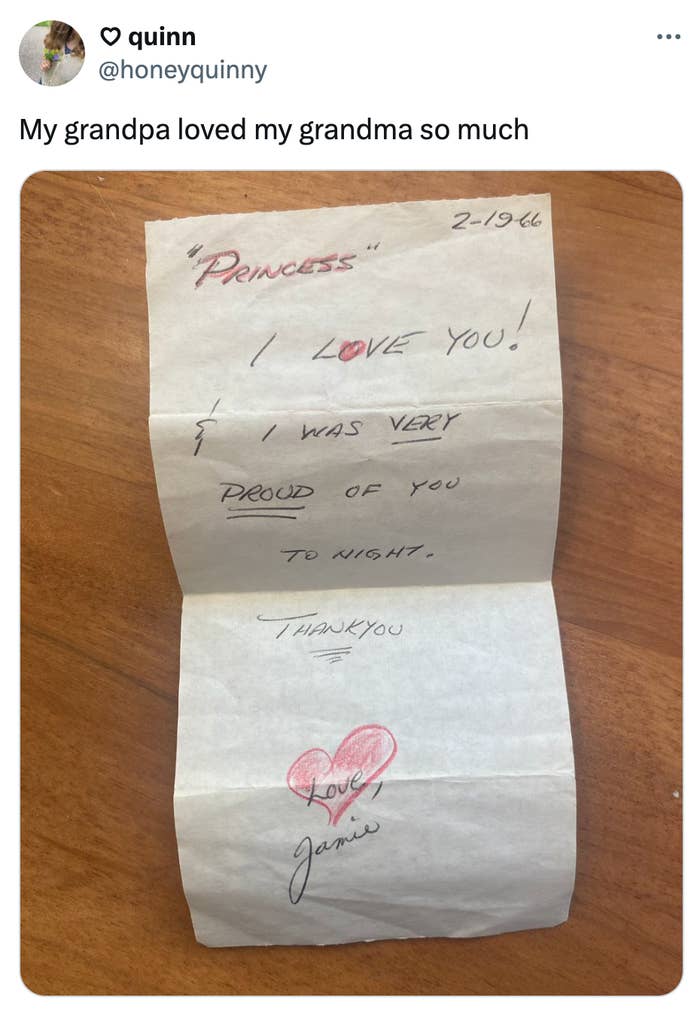 ♡ quinn
@honeyquinny
My grandpa loved my grandma so much
2-1966
"PRINCESS"
I LOVE YOU!
& I WAS VERY
PROUD OF YOU
TO NIGHT.
THANKYOU
Love,
Jamie